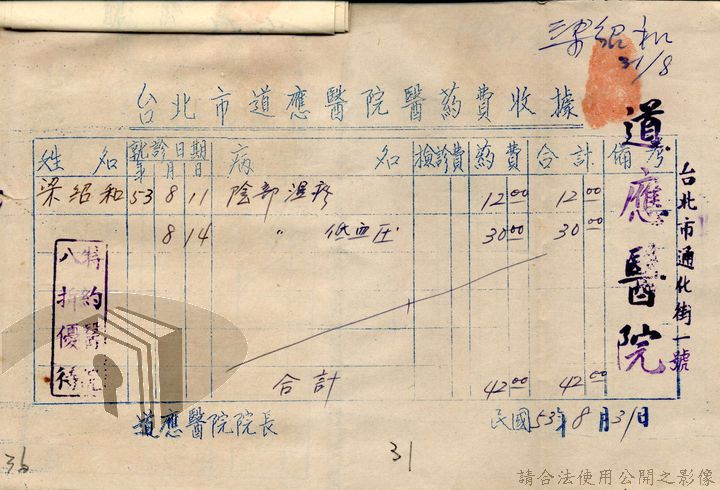 梁紹和
31/8
台北市道應醫院醫葯費收據
姓名 就診日期 年 月 日 病名 檢診費 葯費 合計 備考
梁紹和 53 8 11 陰部湿疹 12.00 12.00
8 14 〃 低血圧 30.00 30.00
合計 42.00 42.00
特約醫院
八折優待
道應醫院
台北市通化街一號
道應醫院院長
民國53年8月31日
36
31
請合法使用公開之影像